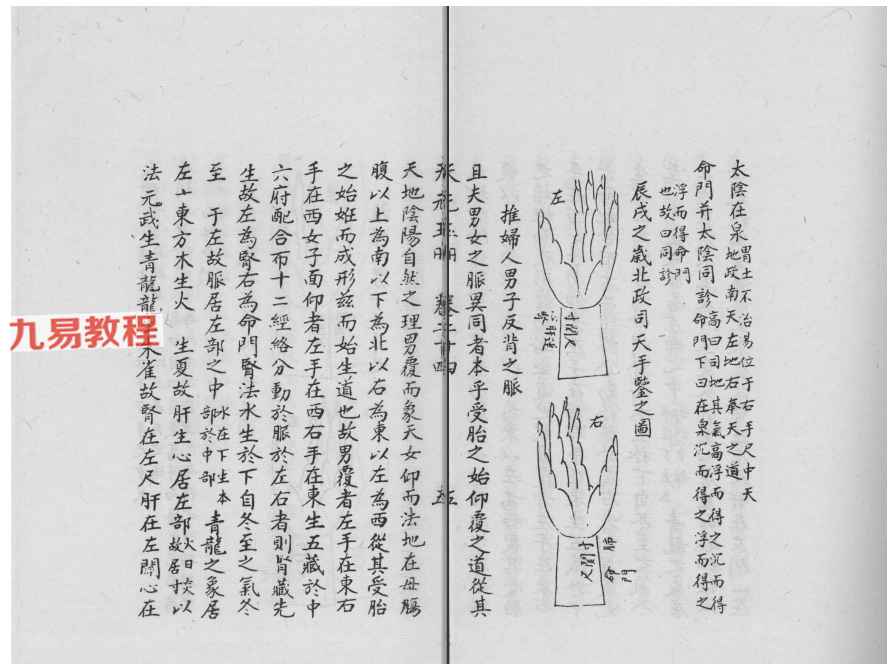 太陰在泉胃土不治易位于右手尺中天
地政南天左地右奉天之道
命門并太陰同診高曰司地其氣高浮而得之沉而得
命門下曰在泉沉而得之浮而得之
浮而得命門
也故曰同診
辰戌之歲北政司天手鑒之圖
左
寸關尺
心肝
右
寸關尺
肺
命門
推婦人男子反背之脈
且夫男女之脈異同者本乎受胎之始仰覆之道從其
卷二十四
五
天地陰陽自然之理男覆而象天女仰而法地在母腸
腹以上為南以下為北以右為東以左為西從其受胎
之始姙而成形茲而始生道也故男覆者左手在東右
手在西女子面仰者左手在西右手在東生五藏於中
六府配合布十二經絡分動於脈於左右者則腎藏先
生故左為腎右為命門腎法水生於下自冬至之氣冬
至于左故脈居左部之中水在下生本部於中部青龍之象居
左東方木生火生夏故肝生心居左部火日炎故居寸以
法元武生青龍龍朱雀故腎在左尺肝在左關心在
九易教程